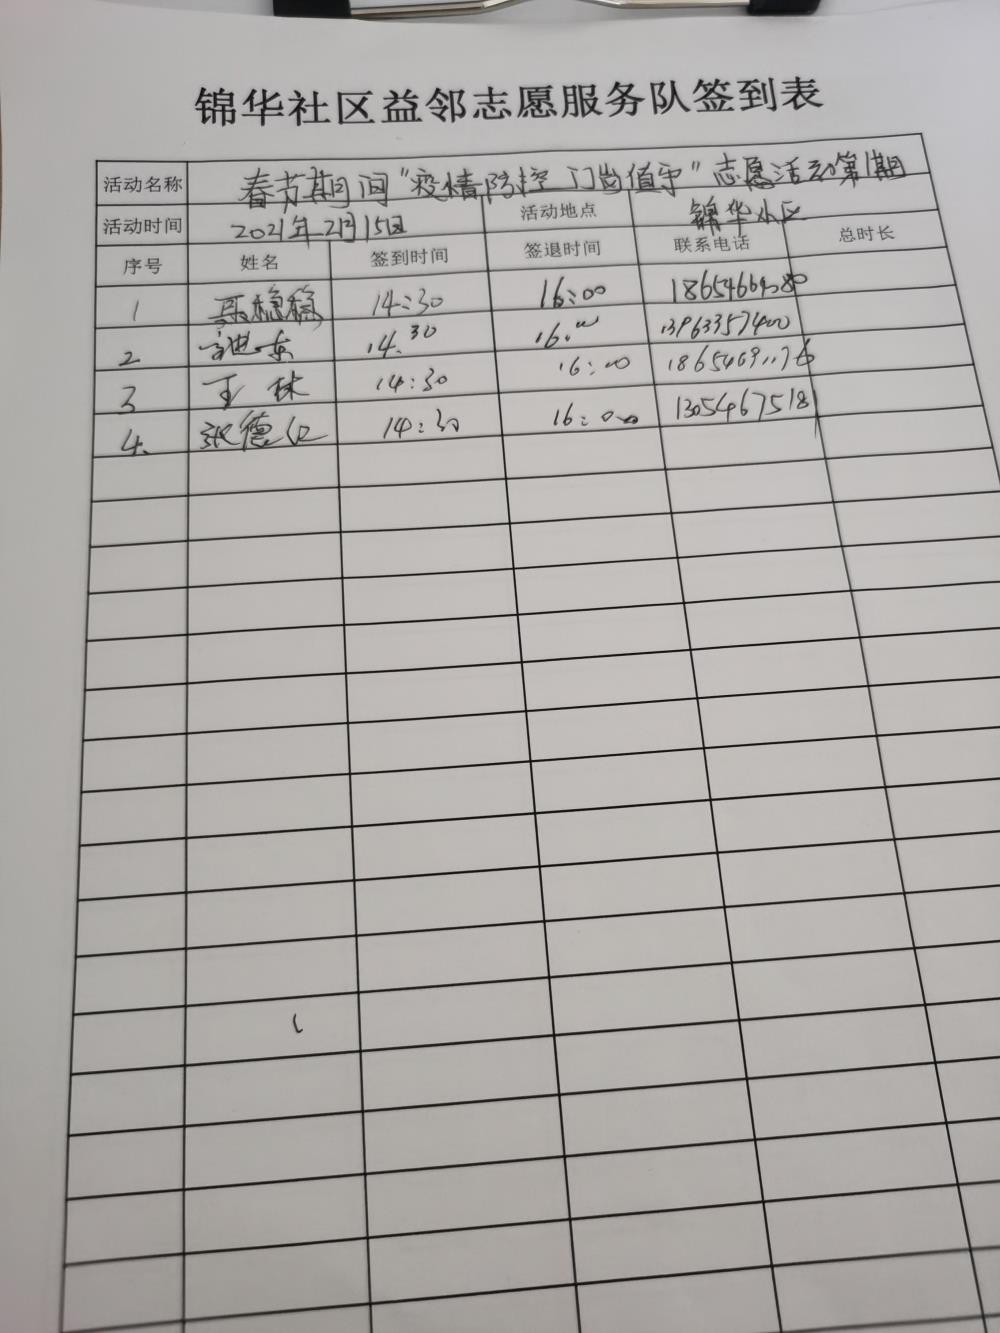 锦华社区益邻志愿服务队签到表
活动名称 春节期间“疫情防控门岗值守”志愿活动第1期
活动时间 2021年2月15日 活动地点 锦华小区
序号 姓名 签到时间 签退时间 联系电话 总时长
1 稳稳 14:30 16:00
2 14.30 16.00 13963357400
3 王林 14:30 16:00
4. 张德仁 14:30 16:00 13054675181